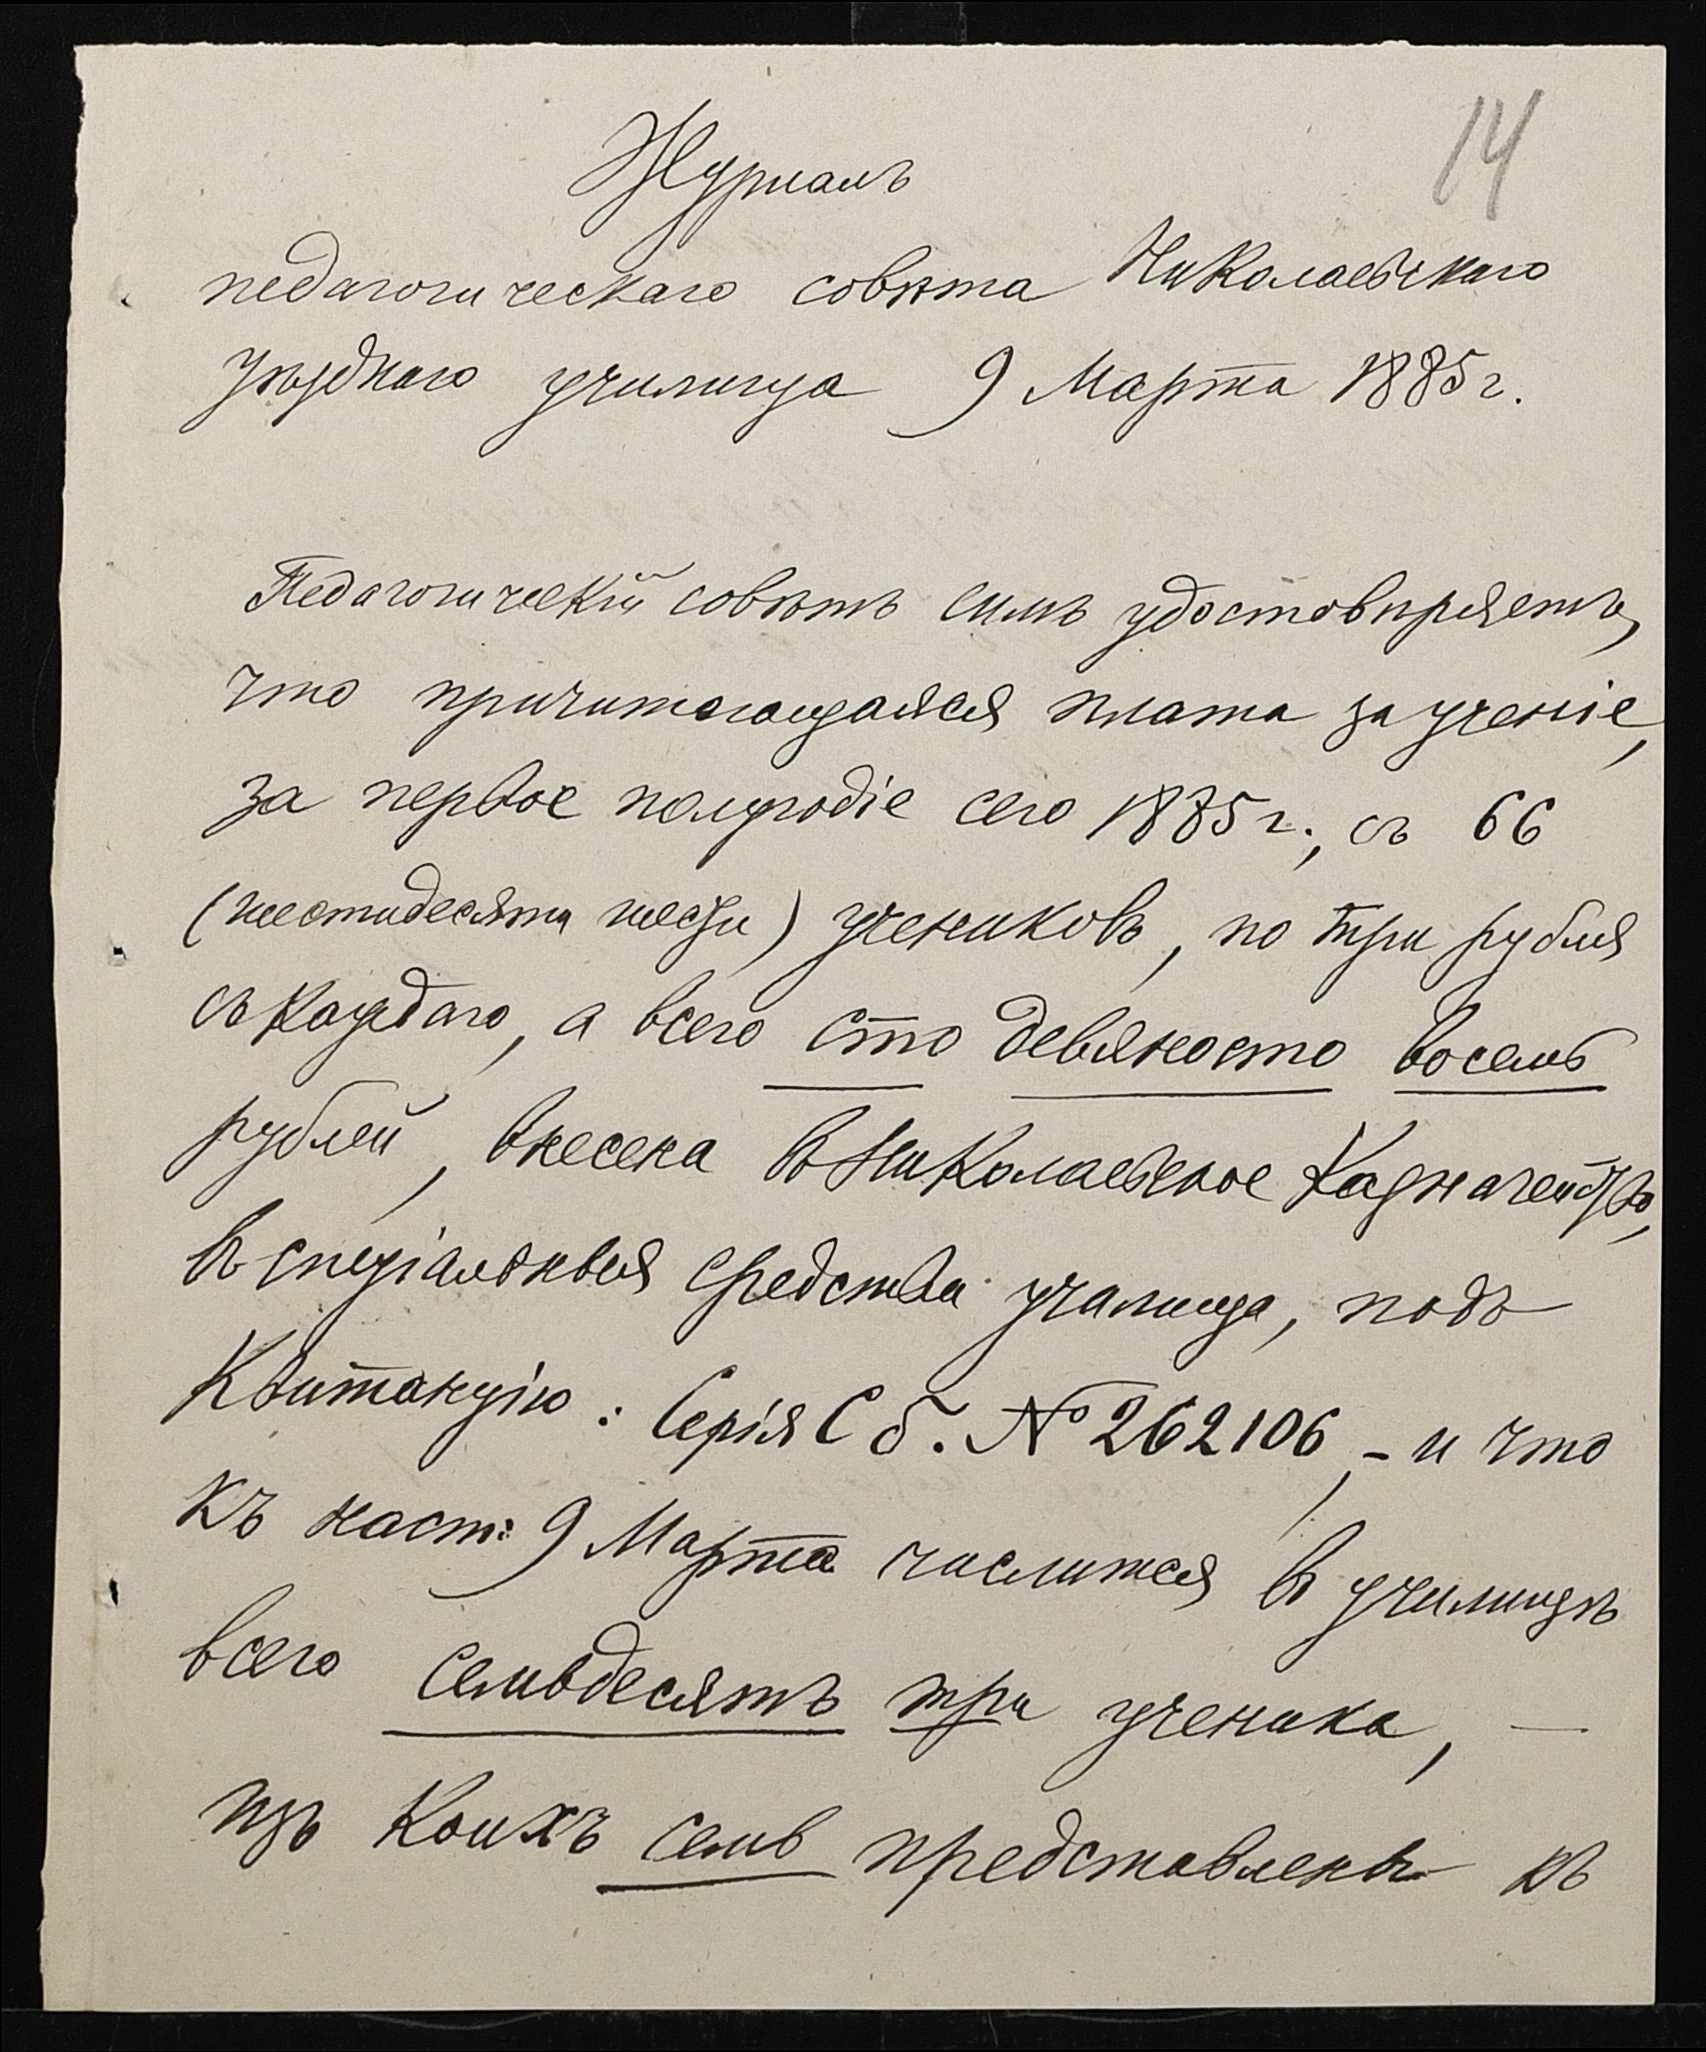 14
Журналъ
педагогическаго совѣта Николаевскаго
уѣзднаго училища 9 Марта 1885 г.
Педагогическій совѣтъ симъ удостовѣряетъ,
что причитающаяся плата за ученіе,
за первое полугодіе сего 1885 г., съ 66
(шестидесяти шести) учениковъ, по три рубля
съ каждаго, а всего сто девяносто восемь
рублей, внесена въ Николаевское Казначейство,
въ спеціальныя средства училища, подъ
Квитанцію: Серія С б. № 262106, - и что
къ наст: 9 Марта числится въ училищѣ
всего семьдесятъ три ученика, —
изъ коихъ семь представлены къ